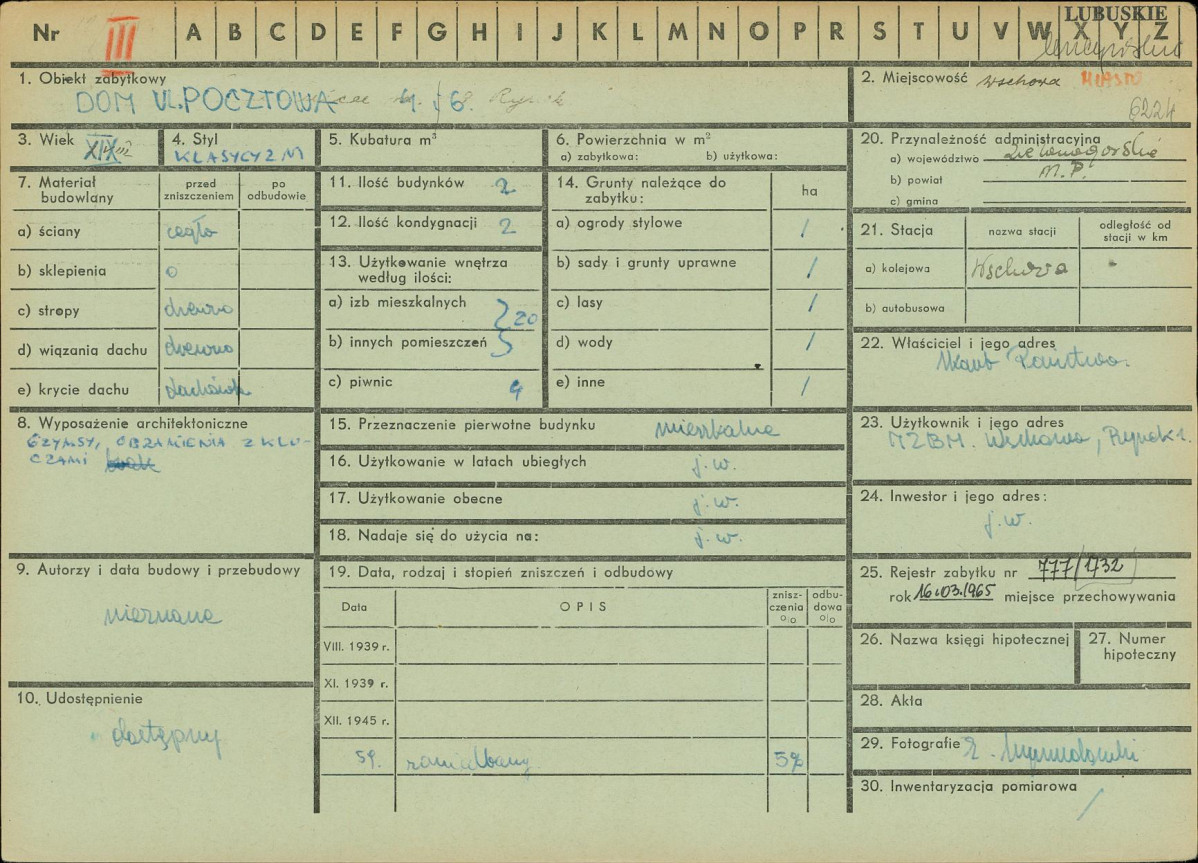 LUBUSKIE
Nr III A B C D E F G H I J K L M N O P R S T U V W X Y Z
1. Obiekt zabytkowy
DOM UL. POCZTOWA
2. Miejscowość Wschowa MIASTO
6224
3. Wiek XIX
4. Styl
KLASYCYZM
5. Kubatura m³
6. Powierzchnia w m²
a) zabytkowa: b) użytkowa:
20. Przynależność administracyjna
a) województwo Zielonogórskie
b) powiat m.P.
c) gmina
7. Materiał budowlany
przed zniszczeniem
po odbudowie
a) ściany cegła
b) sklepienia o
c) stropy drewno
d) wiązania dachu drewno
e) krycie dachu dachówk
11. Ilość budynków 2
12. Ilość kondygnacji 2
13. Użytkowanie wnętrza
według ilości:
a) izb mieszkalnych 20
b) innych pomieszczeń
c) piwnic 4
14. Grunty należące do
zabytku:
ha
a) ogrody stylowe /
b) sady i grunty uprawne /
c) lasy /
d) wody /
e) inne /
21. Stacja
nazwa stacji
odległość od
stacji w km
a) kolejowa Wschowa
b) autobusowa
22. Właściciel i jego adres
Skarb Państwa.
8. Wyposażenie architektoniczne
GZYMSY, OBRAMIENIA Z KLU-
CZAMI
15. Przeznaczenie pierwotne budynku mieszkalne
16. Użytkowanie w latach ubiegłych j.w.
17. Użytkowanie obecne j.w.
18. Nadaje się do użycia na: j.w.
23. Użytkownik i jego adres
MZBM. Wschowa, Rynek 1.
24. Inwestor i jego adres:
j.w.
9. Autorzy i data budowy i przebudowy
nieznane
10. Udostępnienie
dostępny
19. Data, rodzaj i stopień zniszczeń i odbudowy
Data
OPIS
znisz-
czenia
%
odbu-
dowa
%
VIII. 1939 r.
XI. 1939 r.
XII. 1945 r.
59. zaniedbany 5%
25. Rejestr zabytku nr 777/1732
rok 16.03.1965 miejsce przechowywania
26. Nazwa księgi hipotecznej
27. Numer
hipoteczny
28. Akta
29. Fotografie
30. Inwentaryzacja pomiarowa
/